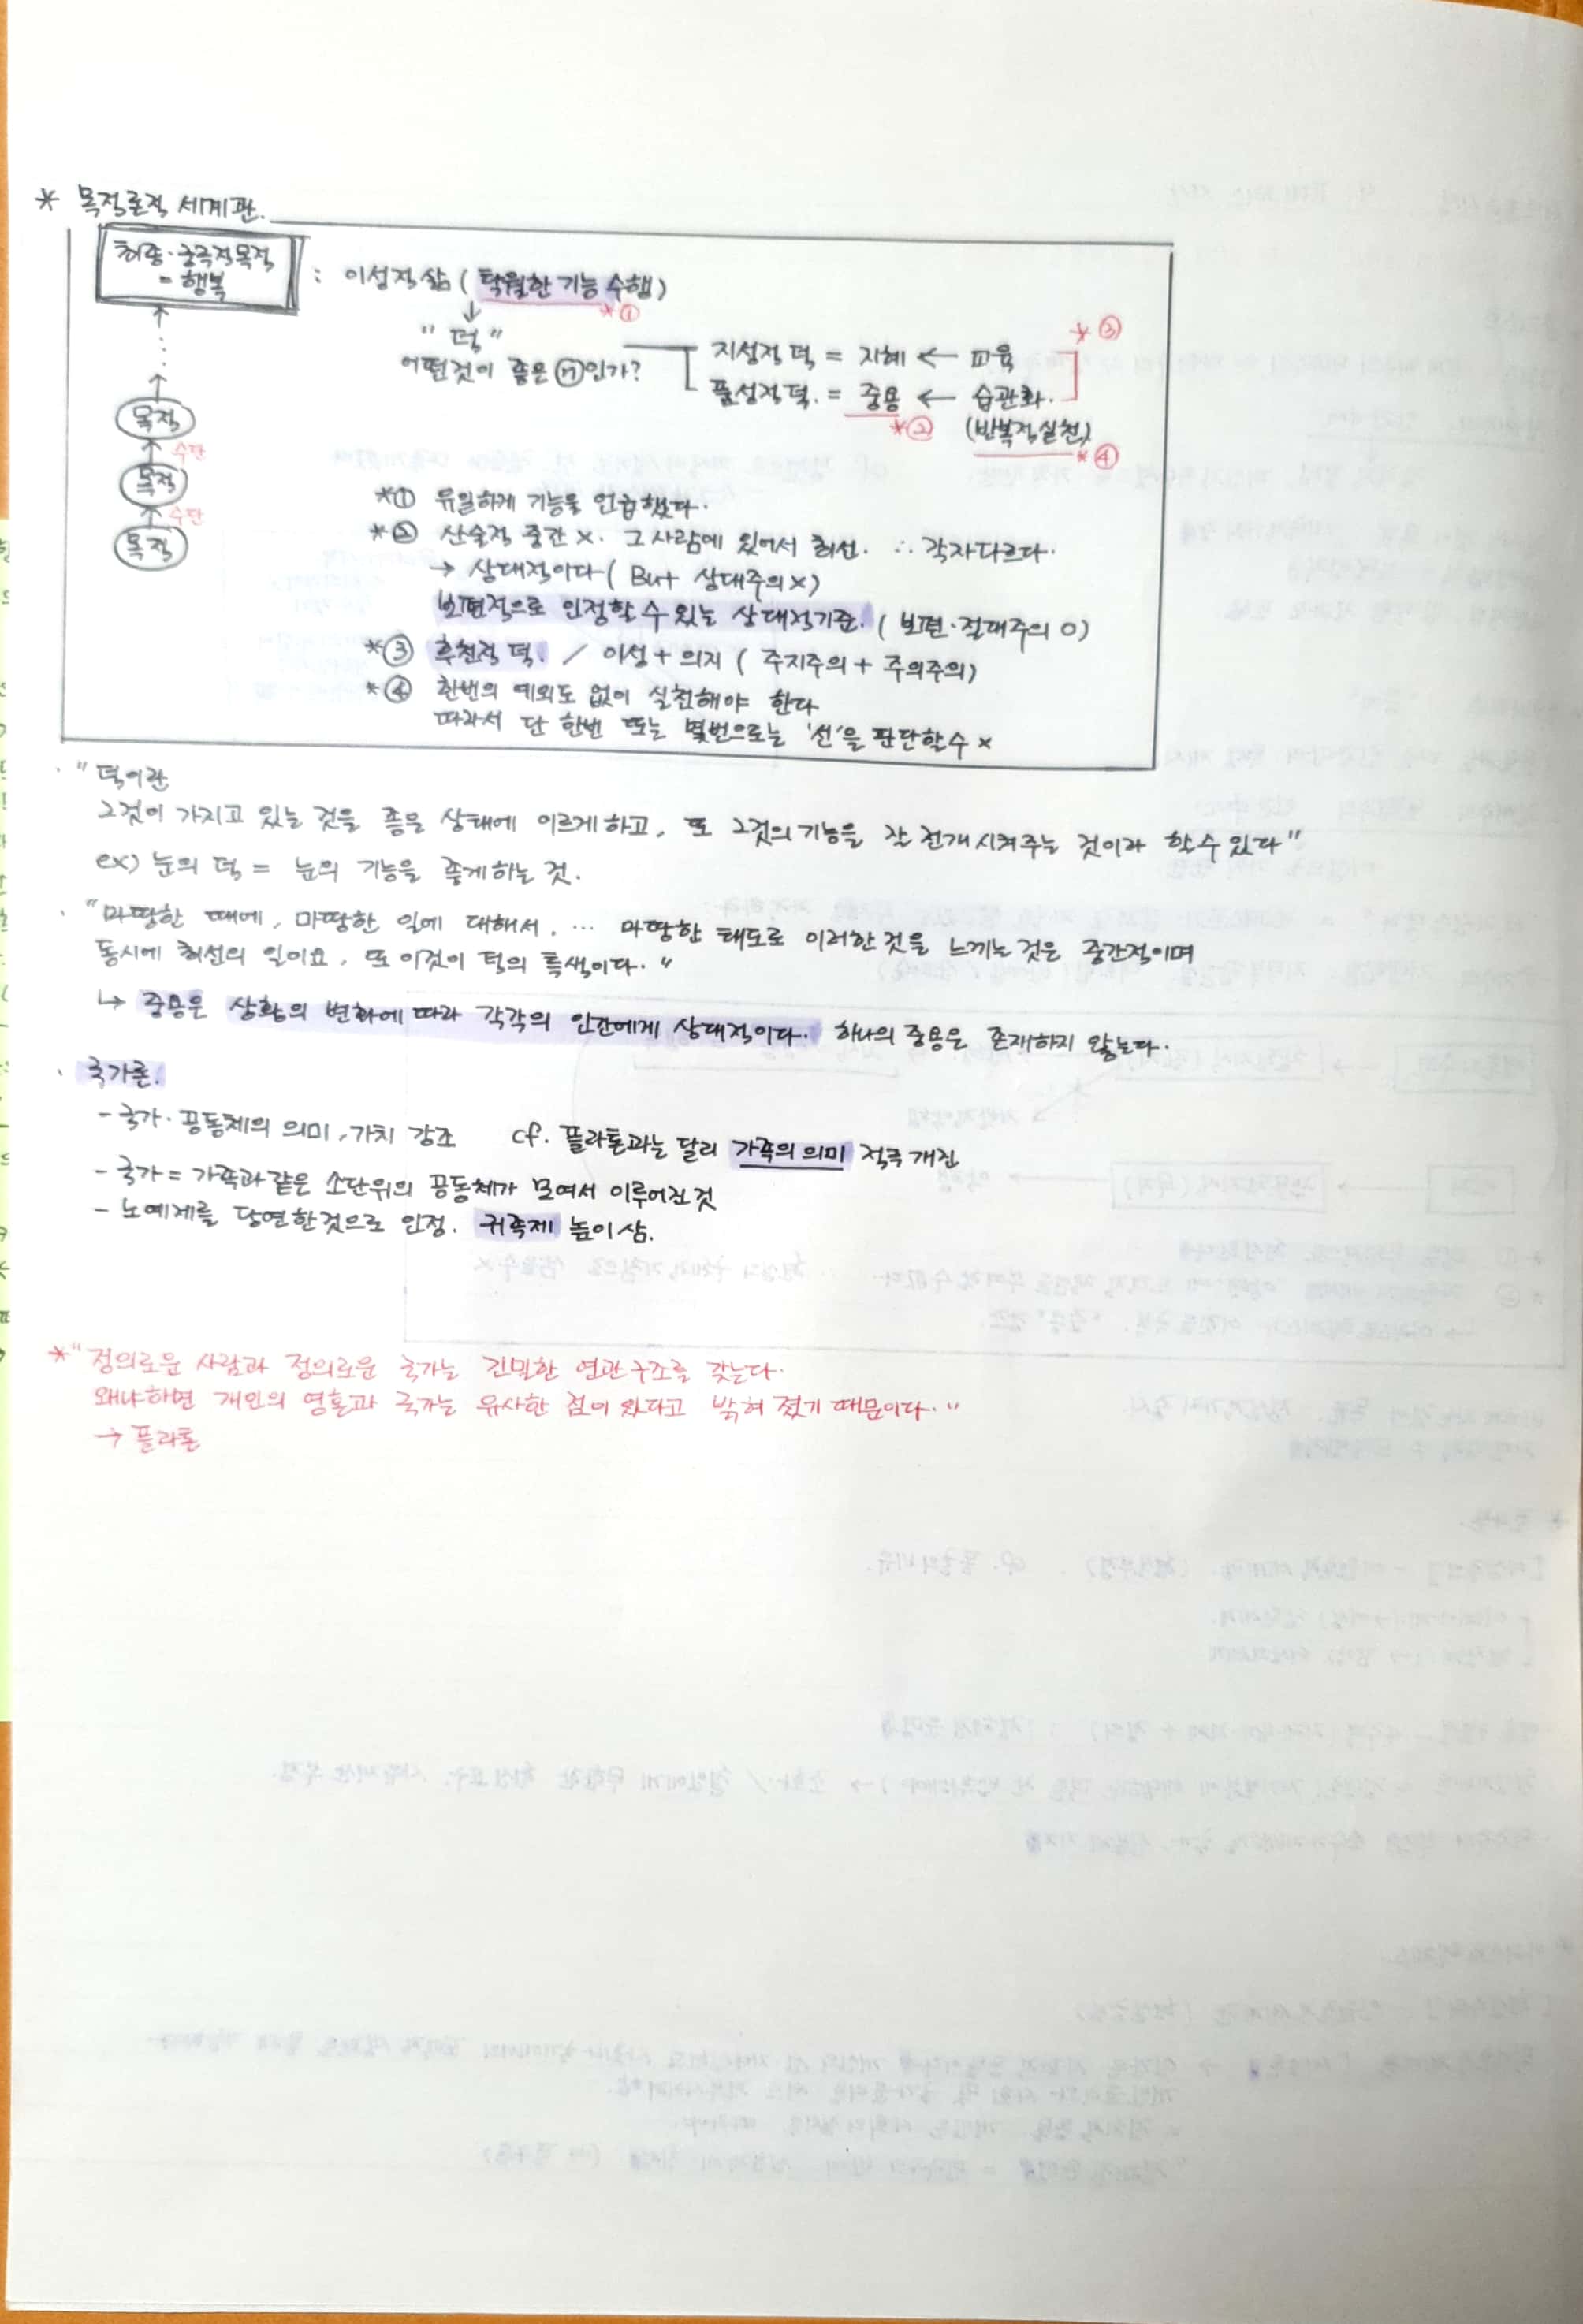 * 목적론적 세계관.
최종·궁극적목적
= 행복
: 이성적 삶 ( 탁월한 기능 수행)
*①
"덕"
어떤것이 좋은 ㉦인가?
지성적 덕 = 지혜 ← 교육
*③
품성적 덕. = 중용 ← 습관화.
*②
(반복적 실천)
*④
목적
수단
목적
수단
목적
*① 유일하게 기능을 언급했다.
*② 산술적 중간 x. 그 사람에 있어서 최선. ∴ 각자다르다.
→ 상대적이다 ( But 상대주의 x)
보편적으로 인정할 수 있는 상대적기준. ( 보편·절대주의 O)
*③ 후천적 덕. / 이성 + 의지 ( 주지주의 + 주의주의)
*④ 한번의 예외도 없이 실천해야 한다
따라서 단 한번 또는 몇번으로는 '선'을 판단할수 x
· "덕이란
그것이 가지고 있는 것을 좋은 상태에 이르게하고, 또 그것의 기능을 잘 전개시켜주는 것이라 할수 있다"
ex) 눈의 덕 = 눈의 기능을 좋게하는 것.
· "마땅한 때에, 마땅한 일에 대해서, … 마땅한 태도로 이러한 것을 느끼는 것은 중간적이며
동시에 최선의 일이요, 또 이것이 덕의 특색이다."
↳ 중용은 상황의 변화에 따라 각각의 인간에게 상대적이다. 하나의 중용은 존재하지 않는다.
· 국가론.
- 국가·공동체의 의미, 가치 강조 cf. 플라톤과는 달리 가족의 의미 적극 개진
- 국가 = 가족과 같은 소단위의 공동체가 모여서 이루어진 것
- 노예제를 당연한것으로 인정. 귀족제 높이 삼.
* "정의로운 사람과 정의로운 국가는 긴밀한 연관구조를 갖는다.
왜냐하면 개인의 영혼과 국가는 유사한 점이 있다고 밝혀 졌기 때문이다."
→ 플라톤